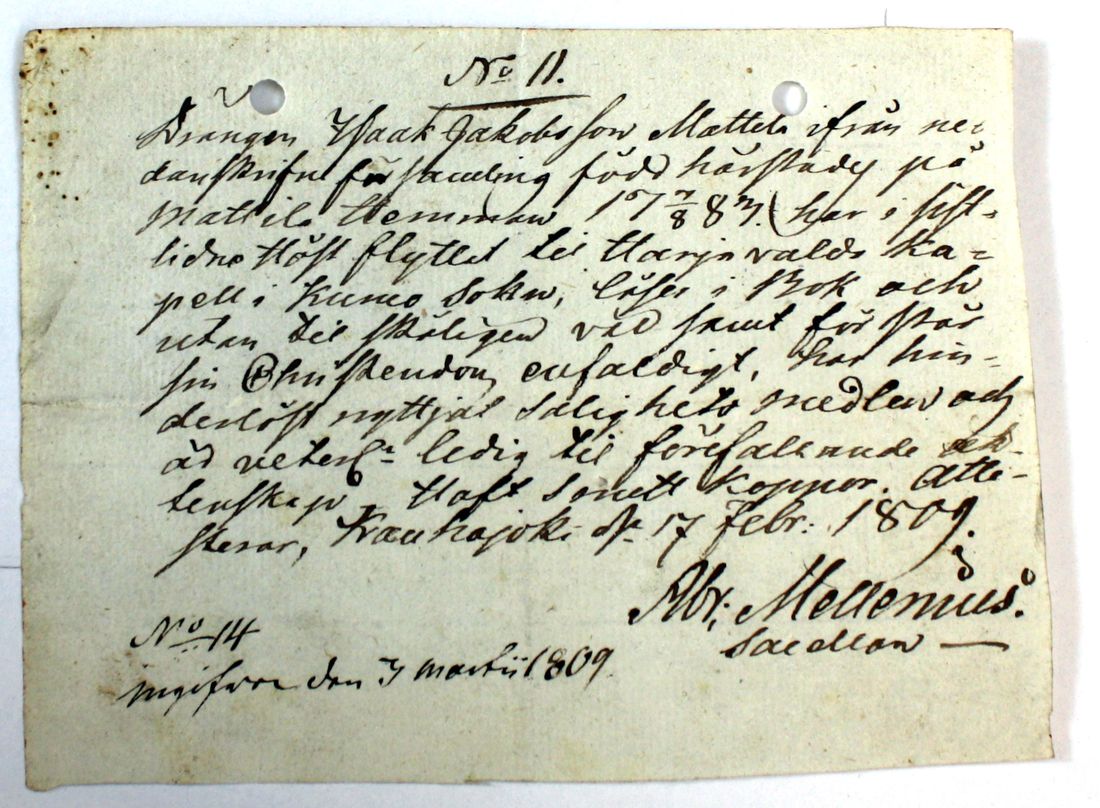 No 11.
Drängen Isaak Jakobsson Mattila ifrån ne-
danskrifne församling född härstädes på
Mattila Hemman 17 7/8 83. har i sist-
lidne Höst flyttat til Harjavalda Ka-
pell i Kumo Sokn, läser i Bok och
utan til skäligen väl samt förstår
sin Christendom enfaldigt, har hin-
derlöst nyttjat salighets medlen och
är veterl:n ledig til förefallande äk-
tenskap. Haft Smått Koppor. Atte-
sterar, Kauhajoki d. 17 Febr: 1809.
Abr; Mellenius.
Sacellan
No 14
ingifven den 7 Martii 1809